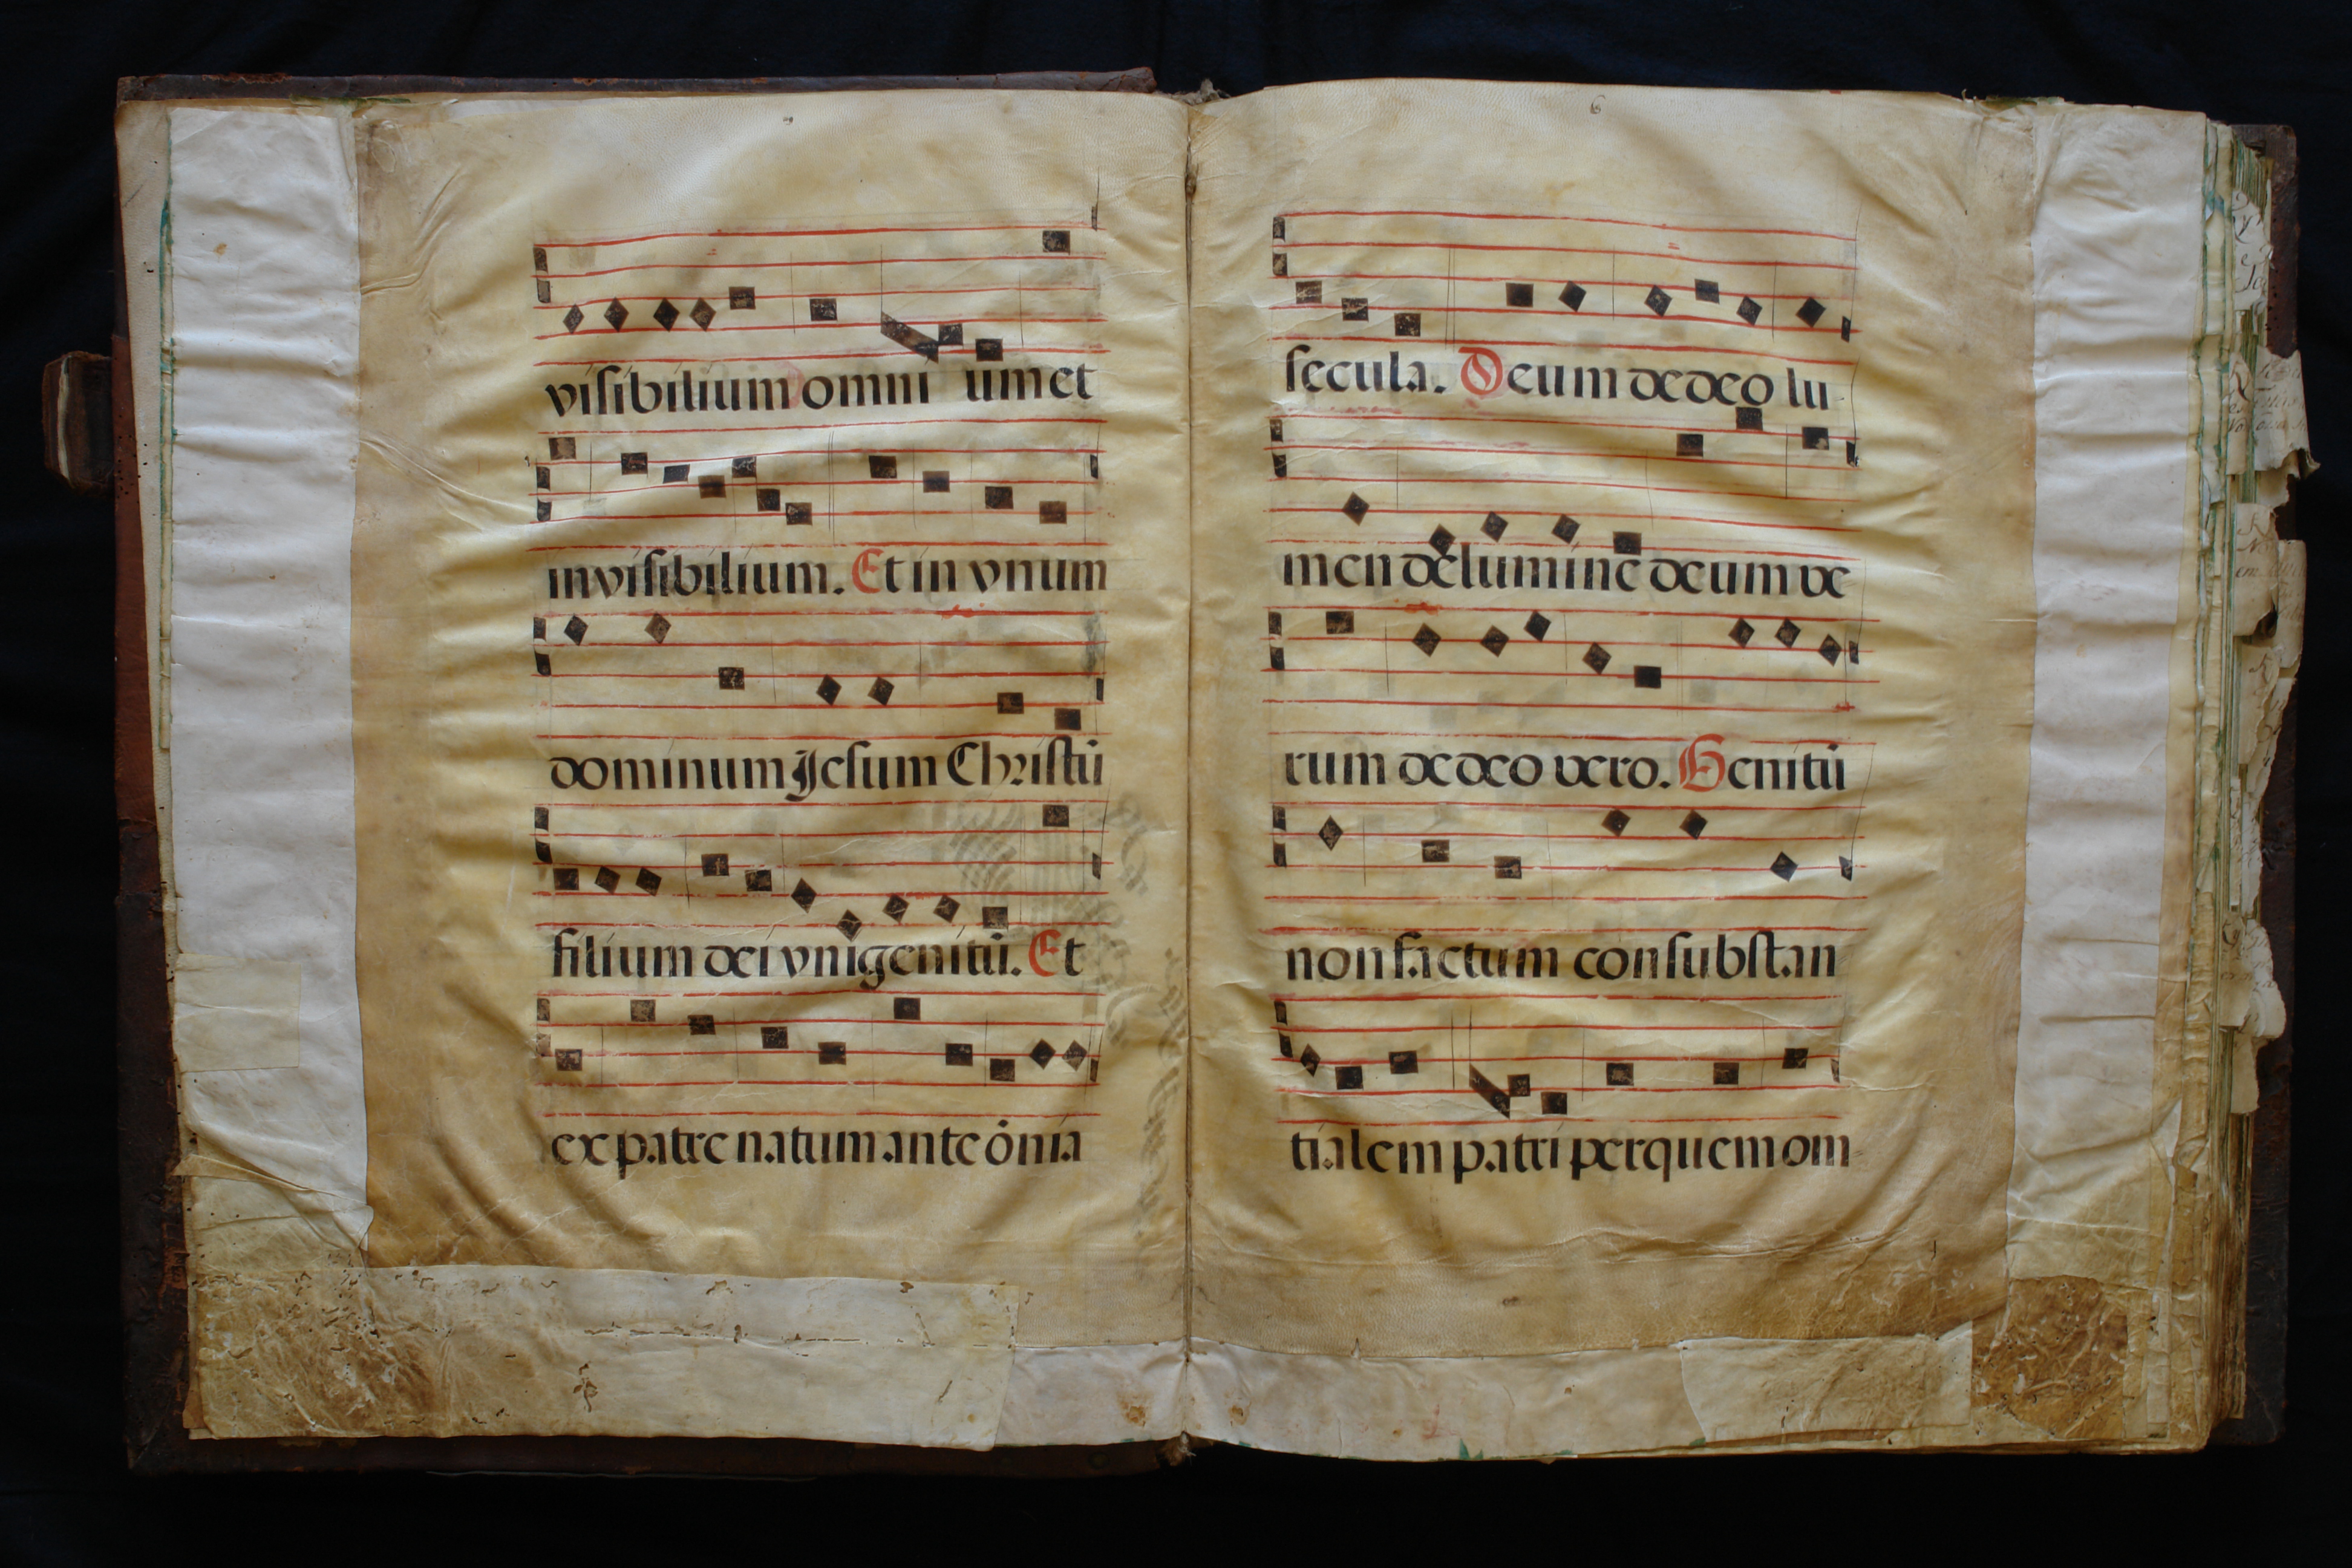 visibilium omni um et
invisibilium. Et in vnum
dominum Jesum Christū
filium dei vnigenitū. Et
ex patre natum ante ōnia
6
secula. Deum de deo lu
men de lumine deum ve
rum de deo vero. Genitū
non factum consubstan
tialem patri per quem om